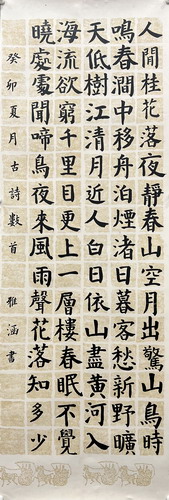 人閒桂花落夜靜春山空月出驚山鳥時
鳴春澗中移舟泊煙渚日暮客愁新野曠
天低樹江清月近人白日依山盡黃河入
海流欲窮千里目更上一層樓春眠不覺
曉處處聞啼鳥夜來風雨聲花落知多少
癸卯夏月古詩數首 雅涵書